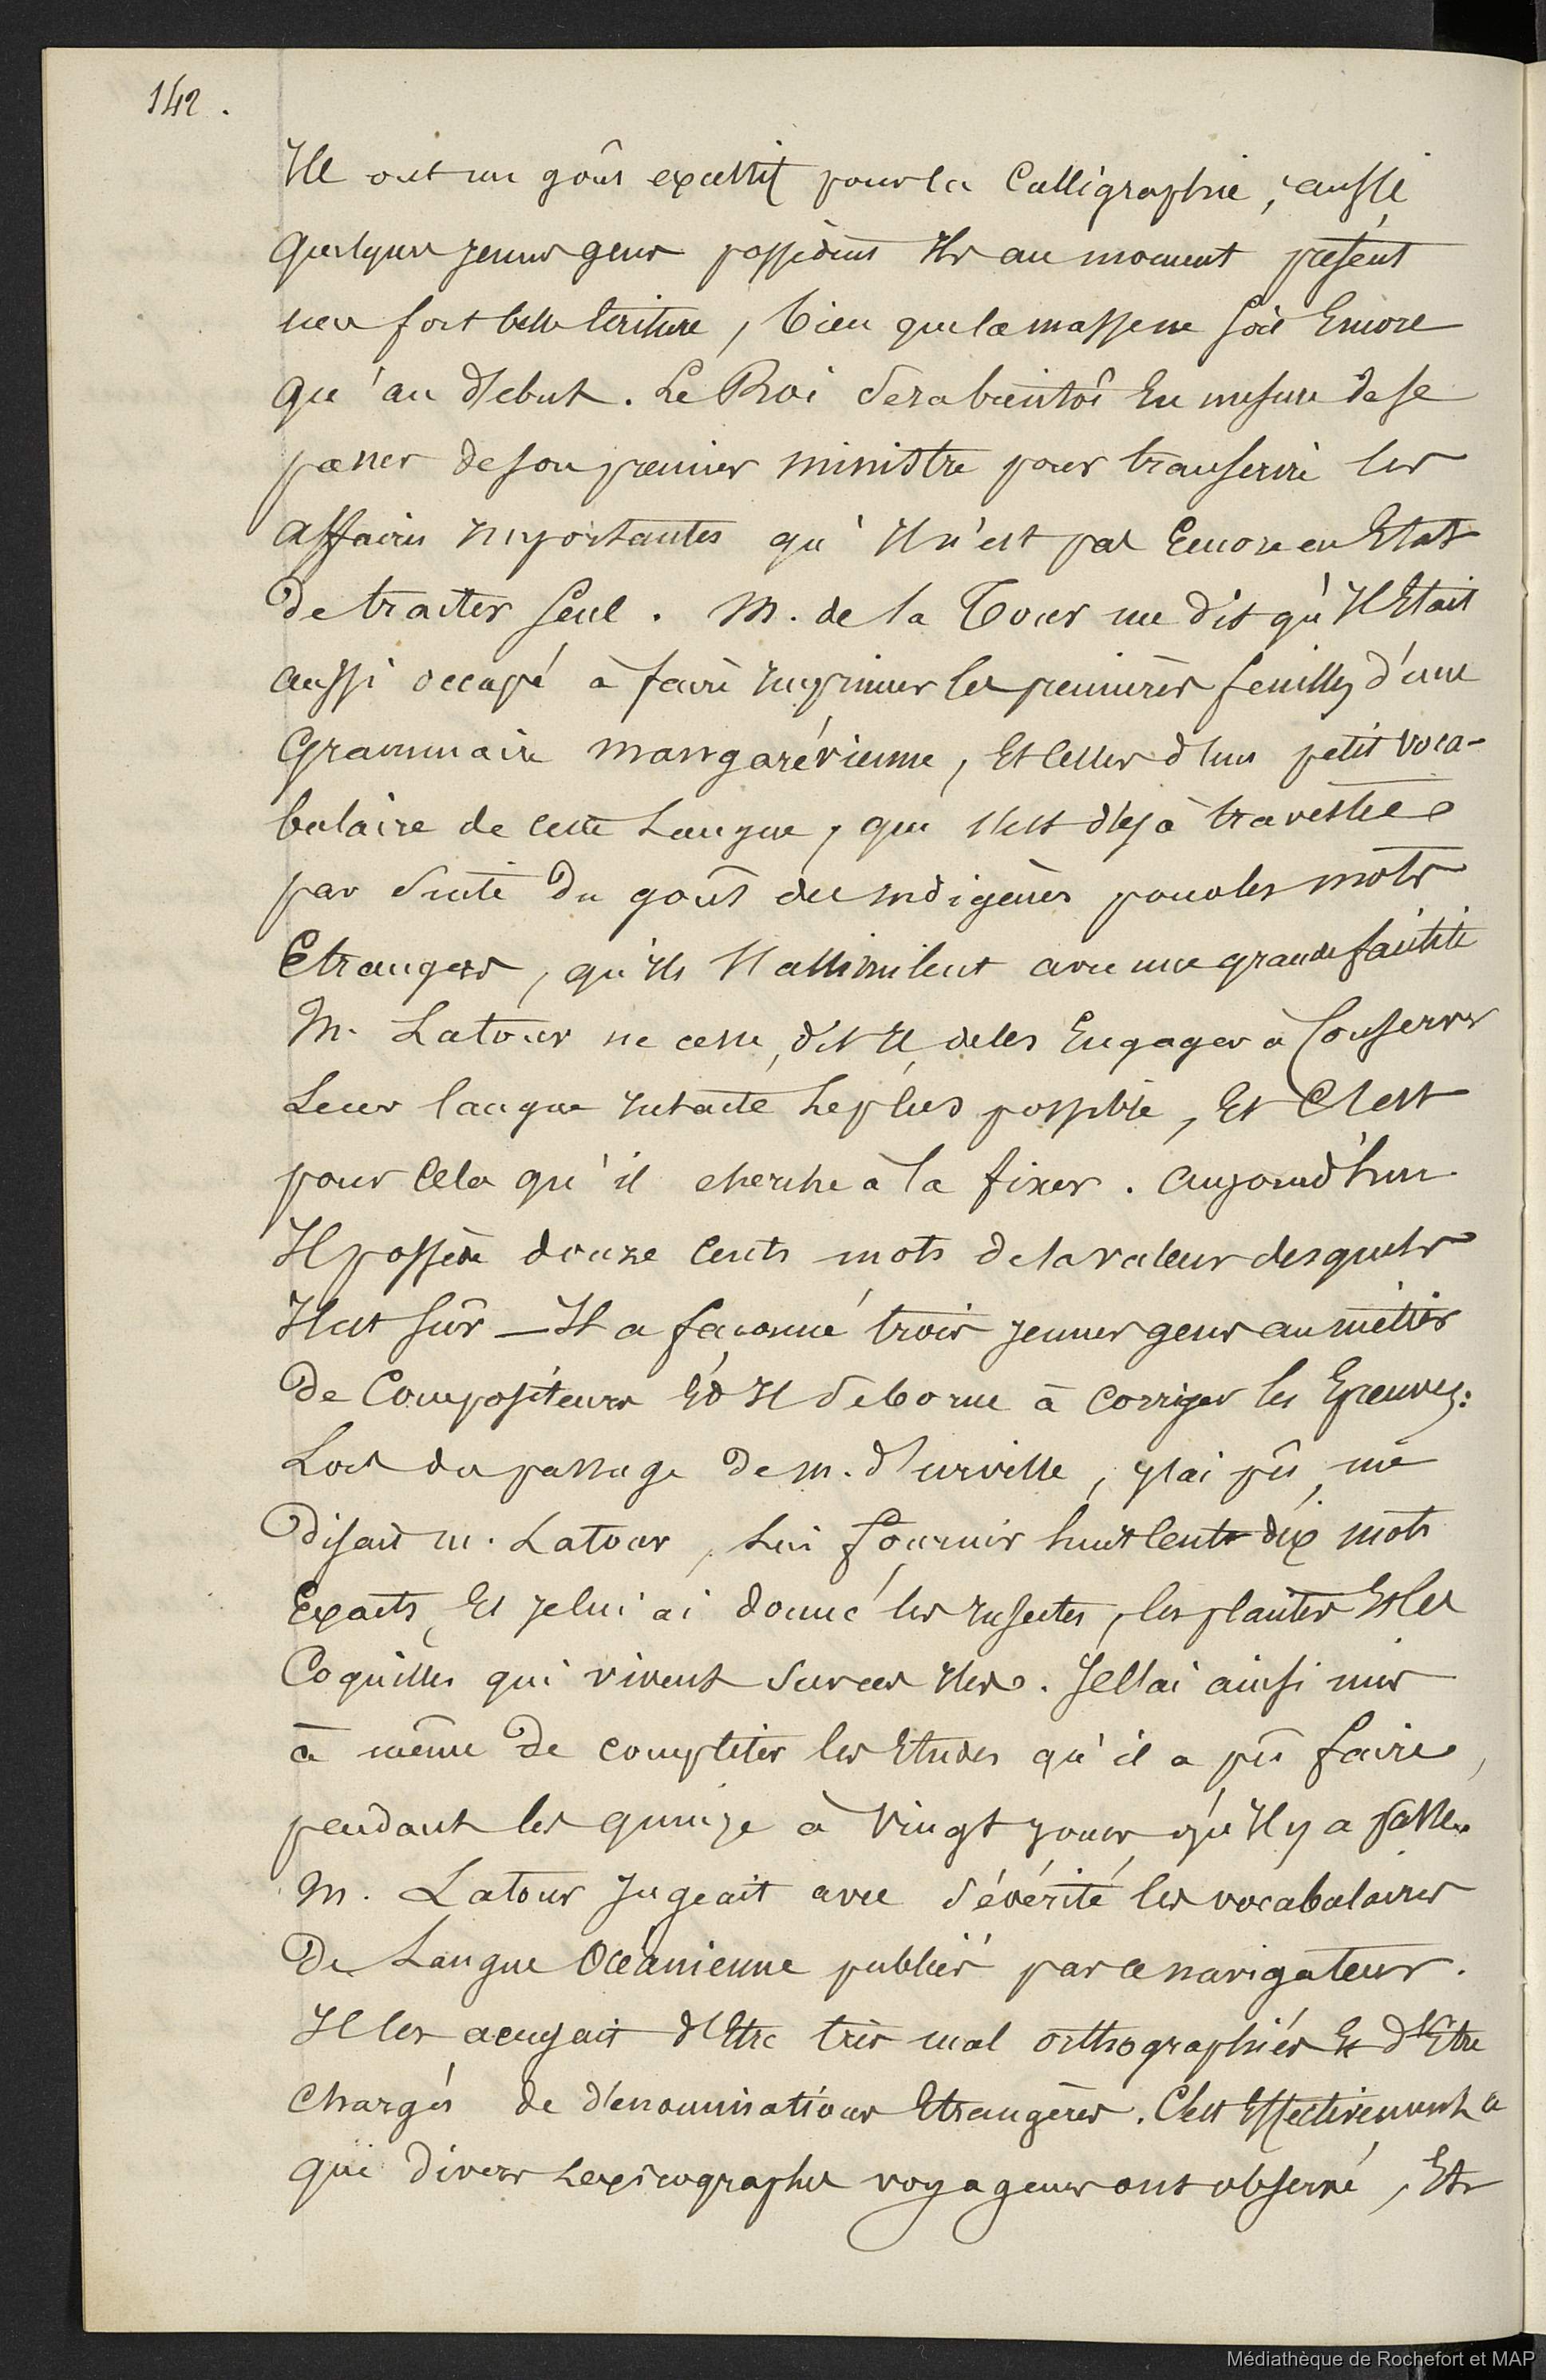 142.
Ils ont un goût excessif pour la Calligraphie, aussi
quelques jeunes gens possèdent Ils au moment présent
une fort belle Ecriture, bien que la masse ne soit Encore
qu'au début. Le Roi sera bientôt En mesure de se
passer de son premier ministre pour transcrire les
affaires Importantes qu'Il n'est pas Encore en Etat
De traiter seul. M. de la Tour me dit qu'Il Etait
aussi occupé à faire Imprimer les premières feuilles d'une
Grammaire mangarévienne, Et Celles d'un petit voca-
bulaire de cette Langue, qui s'est déjà travestie
par suite Du goût des Indigènes pour les mots
Etrangers, qu'Ils s'assimilent avec une grande facilité
M. Latour ne cesse, dit Il, de les Engager à Conserver
Leur langue Intacte Le plus possible, Et C'est
pour Cela qu'il cherche à la fixer. Aujourd'hui
Il possède douze Cents mots de la valeur desquels
Il est sûr — Il a façonné trois jeunes gens au métier
De Compositeurs Et Il se borne à corriger les Epreuves:
Lors du passage De m. d'urville, j'ai pû, me
Disait m. Latour, Lui fournir huit Cent dix mots
Exacts, Et je lui ai donné les Insectes, les plantes Et les
Coquilles qui vivent sur ces Iles. Je l'ai ainsi mis
à même De compléter les Etudes qu'il a pû faire,
pendant les quinze à Vingt jours qu'Il y a passé.
M. Latour Jugeait avec sévérité les vocabulaires
De Langue Océanienne publiés par ce navigateur.
Il les accusait d'Etre très mal orthographiés Et d'Etre
Chargés de dénominations Etrangères. C'est Effectivement ce
que divers Lexicographes voyageurs ont observé, Et
Médiathèque de Rochefort et MAP